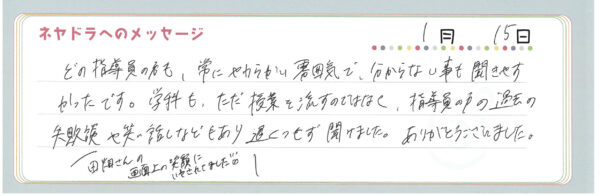 ネヤドラへのメッセージ
1月 15日
どの指導員の方も、常にやわらかい雰囲気で、分からない事も聞きやす
かったです。学科も、ただ授業を流すのではなく、指導員の方の過去の
失敗談や笑い話しなどもあり退くつせず聞けました。ありがとうございました。
田畑さんの
画面上の笑顔に
いやされてました